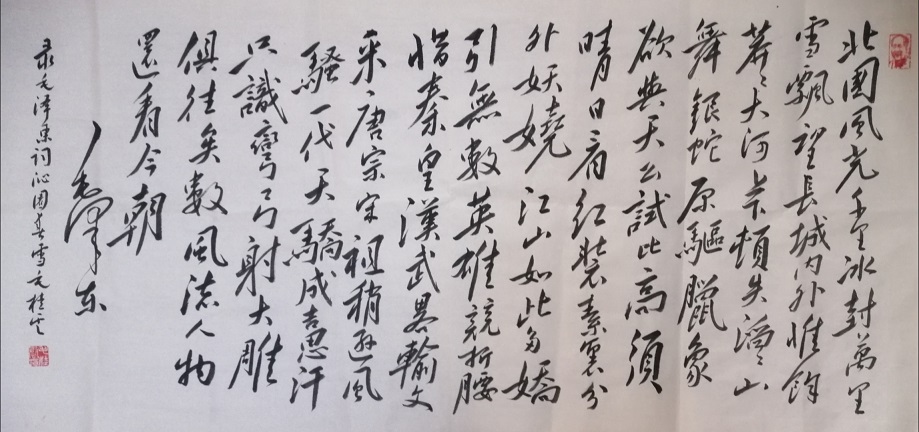 北國风光千里冰封萬里
雪飄望長城内外惟餘
莽々大河上下頓失滔々山
舞銀蛇原驅臘象
欲與天公試比高須
晴日看红裝素裹分
外妖嬈江山如此多嬌
引無數英雄競折腰
惜秦皇漢武畧輸文
采唐宗宋祖稍遜風
騷一代天驕成吉思汗
只識彎弓射大雕
俱往矣數風流人物
還看今朝
毛澤东
录毛泽東词沁园春雪